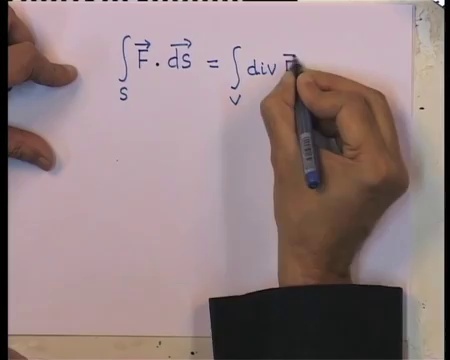 ∫_S F⃗ · dS⃗ = ∫_V div F⃗